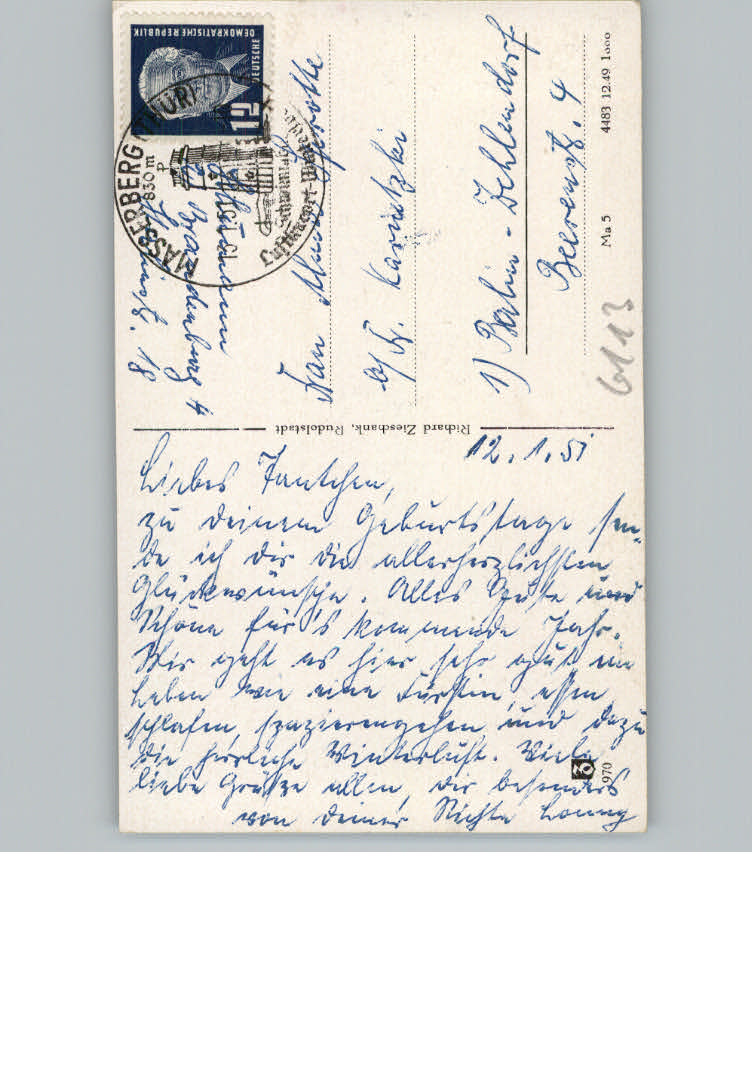 12.1.51
Liebes Tantchen,
zu deinem Geburtstage sen-
de ich dir die allerherzlichsten
Glückwünsche. Alles Gute und
Schöne für's kommende Jahr.
Mir geht es hier sehr gut
Leben wie eine Fürstin, essen
schlafen, spazierengehen und dazu
die herrliche Winterluft. Viele
liebe Grüße allen, dir besonders
von deiner Nichte Lonny
Richard Zieschank, Rudolstadt
DEUTSCHE
DEMOKRATISCHE REPUBLIK
12
MASSERBERG (THÜR
830 m
Brandenburg
18
Frau
b/Fr.
1) Berlin-Zehlendorf
Beerenstr. 4
Ma 5
4483 12.49 1000
6113
970